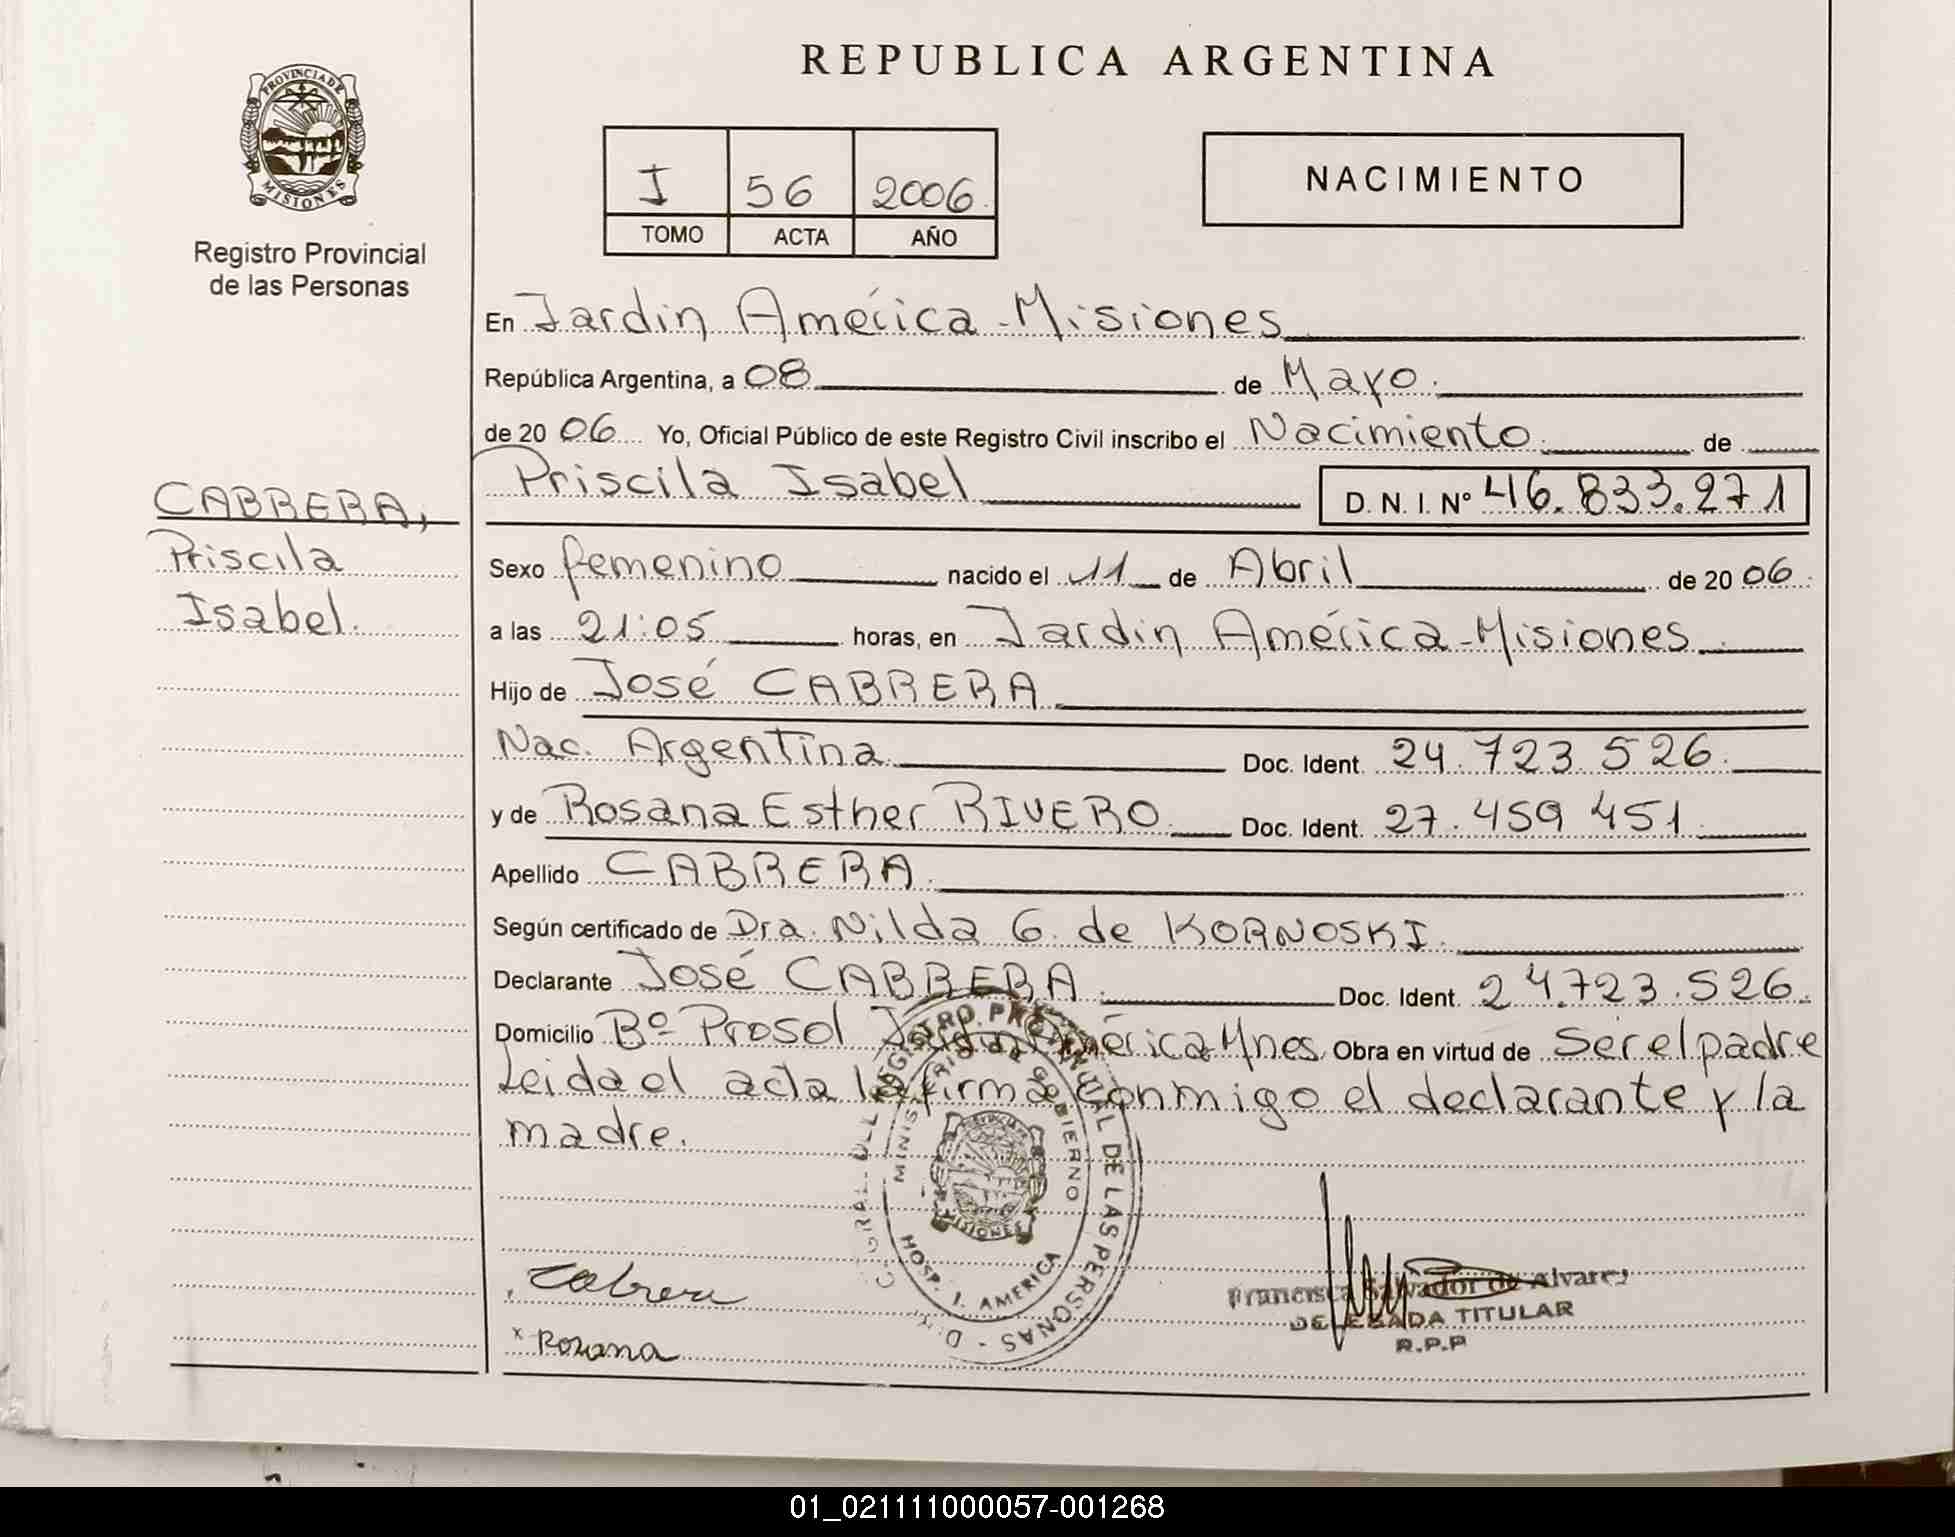 REPUBLICA ARGENTINA
PROVINCIA DE
MISIONES
Registro Provincial
de las Personas
I 56 2006
TOMO ACTA AÑO
NACIMIENTO
En Jardin América - Misiones
República Argentina, a 08 de Mayo.
de 20 06 Yo, Oficial Público de este Registro Civil inscribo el Nacimiento de
Priscila Isabel D. N. I. Nº 46.833.271
CABRERA,
Priscila
Isabel.
Sexo femenino nacido el 11 de Abril de 20 06
a las 21:05 horas, en Jardin América - Misiones
Hijo de José CABRERA
Nac. Argentina Doc. Ident. 24.723.526.
y de Rosana Esther RIVERO Doc. Ident. 27.459 451
Apellido CABRERA.
Según certificado de Dra. Nilda G. de KORNOSKI.
Declarante José CABRERA. Doc. Ident. 24.723.526.
Domicilio Bº Prosol Jardin América Mnes. Obra en virtud de Ser el padre
Leida el acta la firma conmigo el declarante y la
madre.
REGISTRO PROVINCIAL DE LAS PERSONAS
MINISTERIO DE GOBIERNO
MISIONES
HOSP. J. AMERICA
Cabrera
x Rosana
Francisca Salvador de Alvarez
DELEGADA TITULAR
R.P.P
01_021111000057-001268